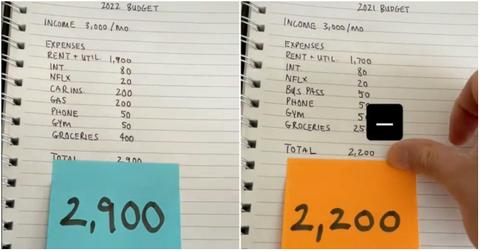 2022 BUDGET
INCOME 3,000/mo
EXPENSES
RENT + UTIL 1,900
INT. 80
NFLX 20
CAR INS. 200
GAS 200
PHONE 50
GYM 50
GROCERIES 400
TOTAL 2,900
2,900
2021 BUDGET
INCOME 3,000/mo
EXPENSES
RENT + UTIL 1,700
INT. 80
NFLX 20
BUS PASS 50
PHONE 5
GYM 5
GROCERIES 25
TOTAL 2,200
2,200